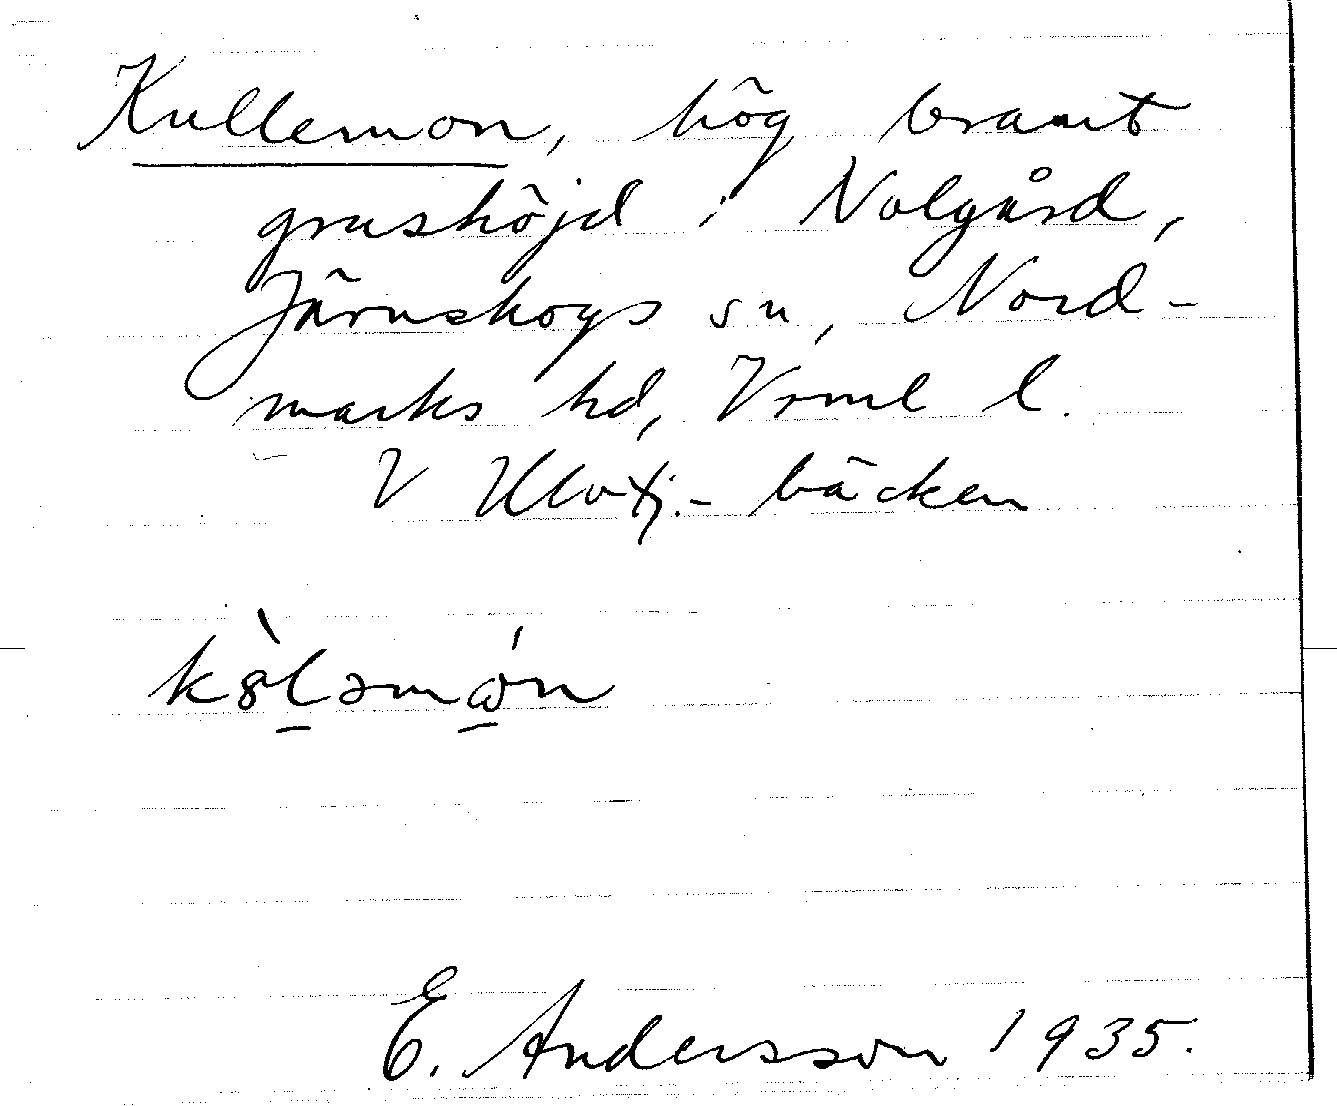 Kullemon, hög brant
grushöjd i Nolgård,
Järnskogs sn, Nord-
marks hd, Vrml l.
V Ulvtj.- bäcken
E. Andersson 1935.